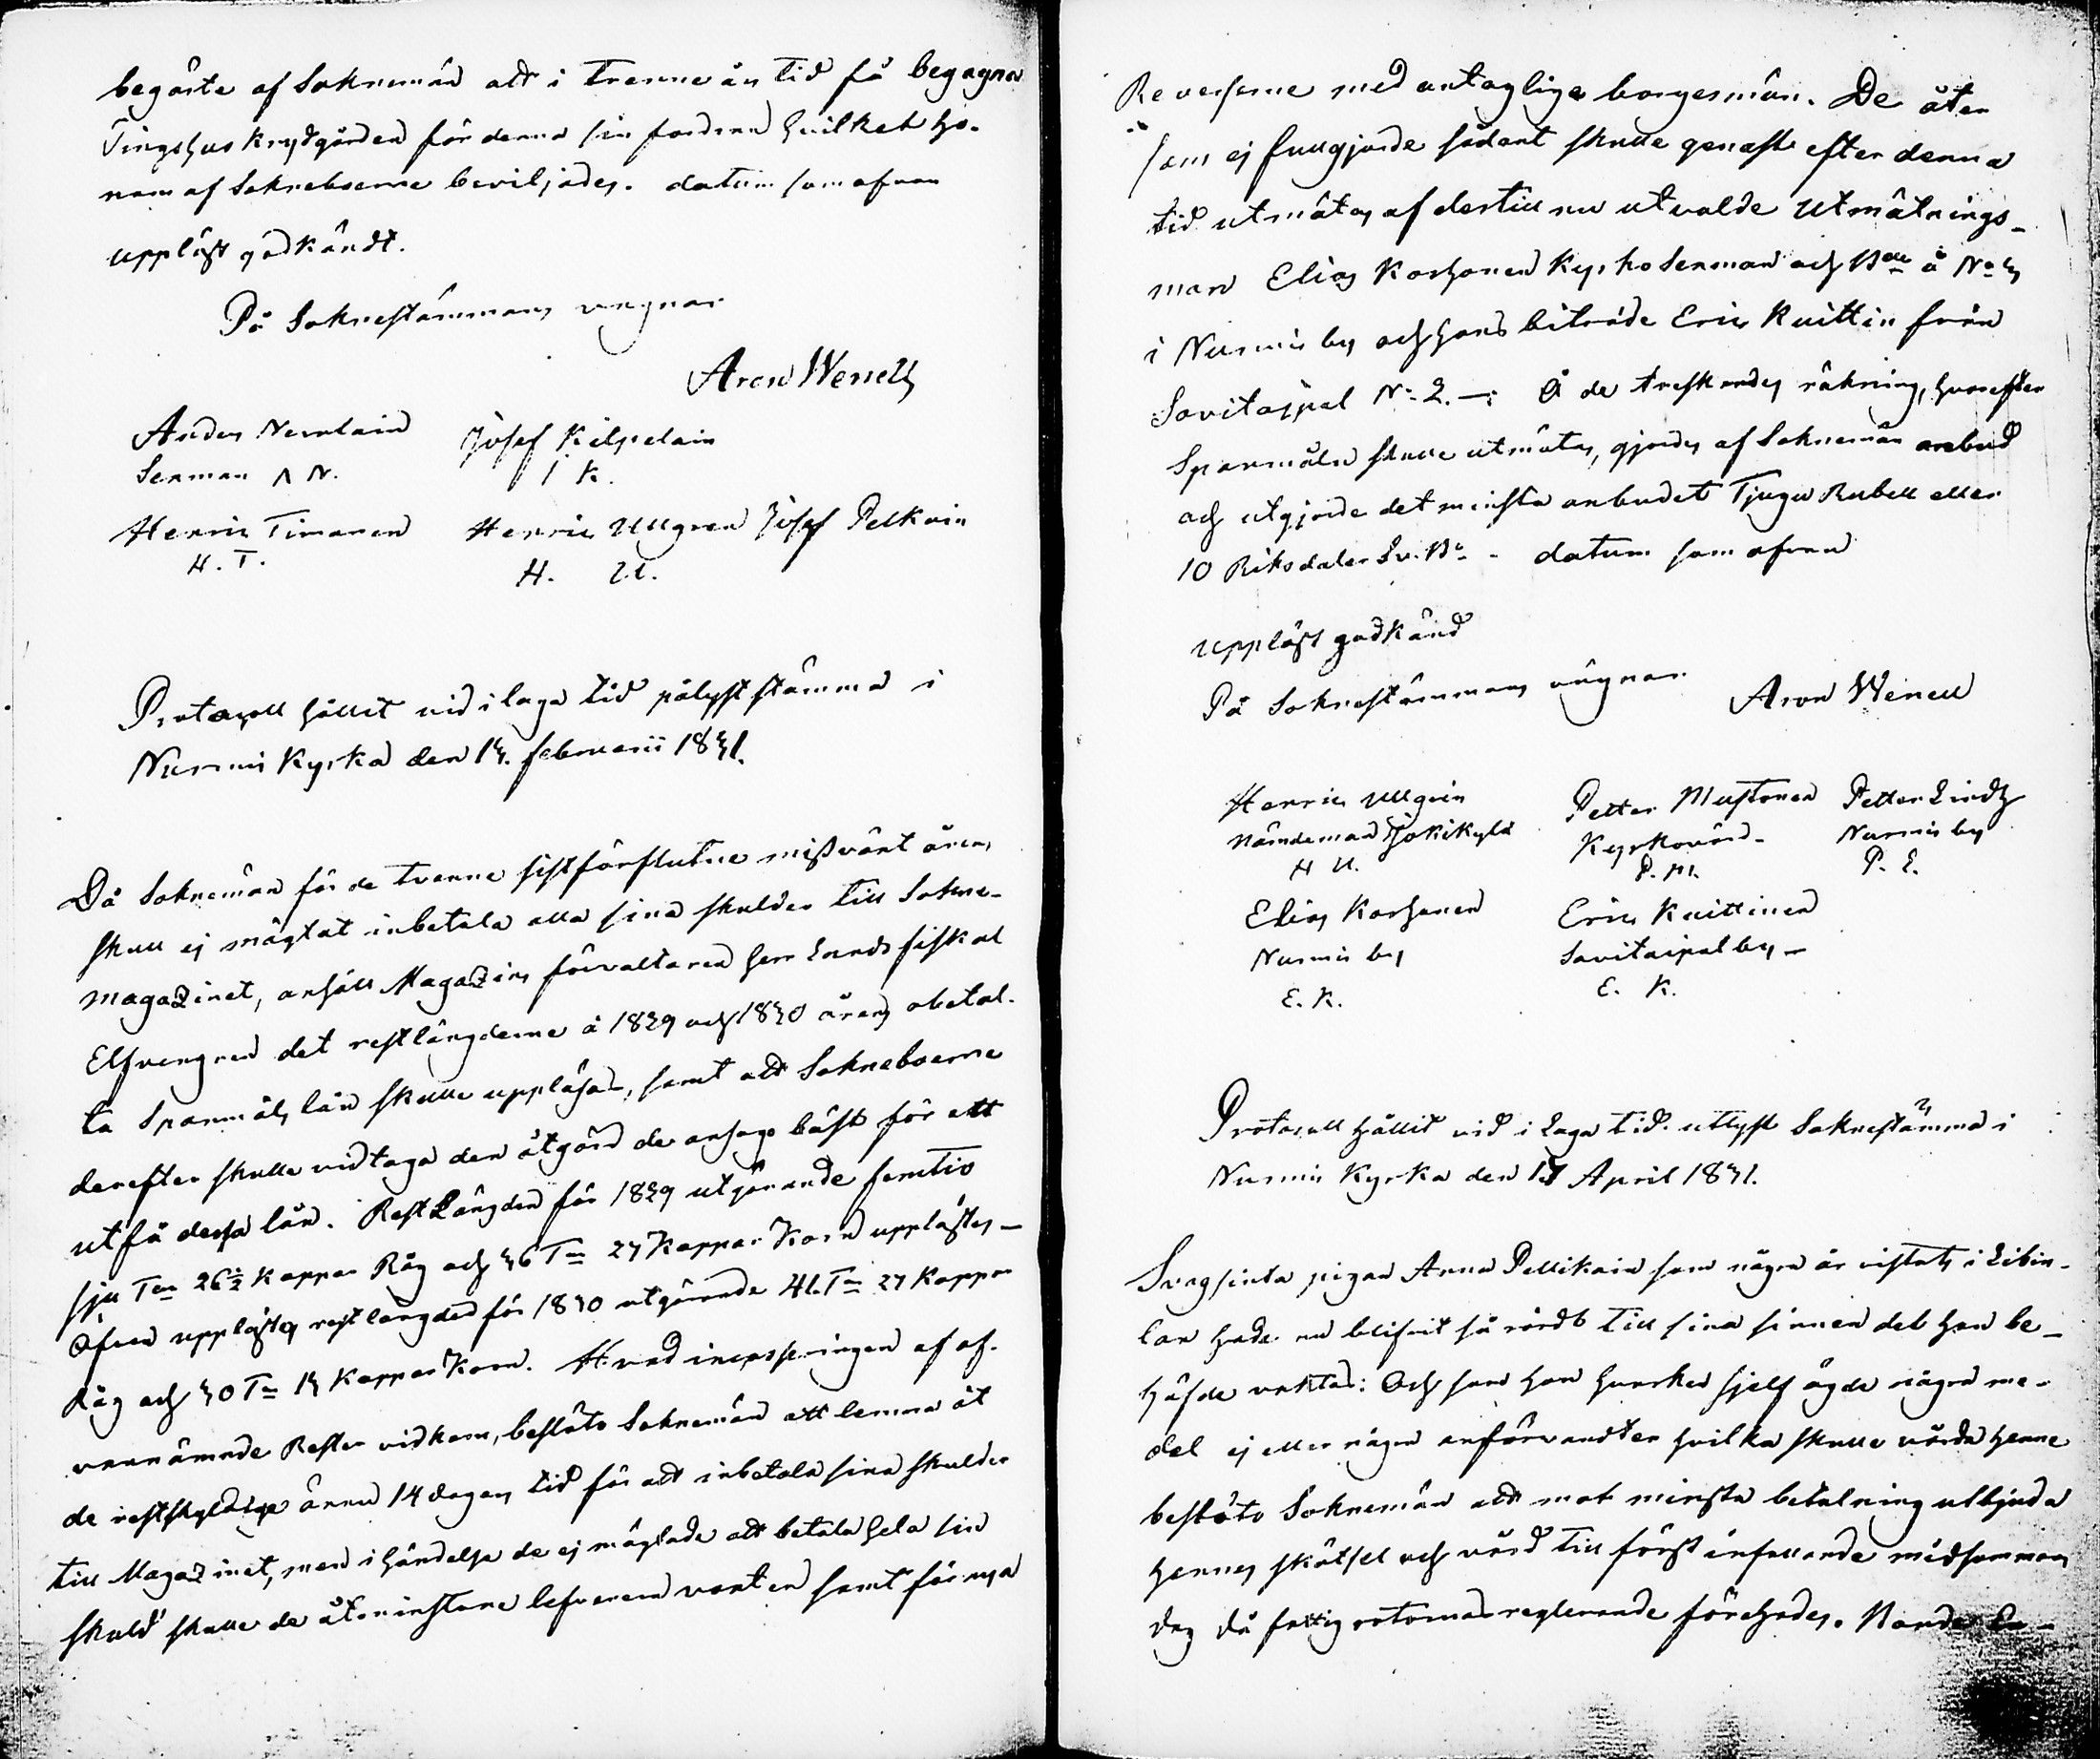 begärte af Soknemän att i trenne års tid få begagna
Tingshus krydgården för denna sin fordran hvilket ho-
nom af Sokneboerne beviljades. datum som ofvan
uppläst godkändt.
På Soknestämmans vägnar
Aron Wenell
Anders Nevalain Josef Kilpelain
Sexman A N. I K.
Henric Timonen Henric Ullgren Josef Pelkoin
H. T. H. U.
Protocoll hållit vid i laga tid pålyst stämma i
Nurmis Kyrka den 14. februarii 1841.
Då Soknemän för de tvenne sistförflutne missväxt åren,
skull ej mägtat inbetala alla sina skulder till Sokne-
magazinet, anhöll Magazins förvaltaren herr Landsfiskal
Elfvengren det restlängderne å 1839 och 1840 årens obetal-
ta Spanmåls lån skulle uppläsas, samt att Sokneboerne
derefter skulle vidtaga den åtgärd de ansågo bäst för att
utfå dessa lån. Rest Längden för 1839 utgörande femtio
sju Tnr 26½ kappar Råg och 46 Tr 27 Kappar Korn upplästes –
Äfven upplästes restlängden för 1840 utgörande 41. Tr 27 Kappar
Råg och 40 Tr 14 Kappar Korn. Hvad incasseringen af of-
vannämnde Rester vidkom, beslöto Soknemän att lemna åt
de restskyldige ännu 14 dagars tid för att inbetala sina skulder
till Magazinet, men i händelse de ej mägtade att betala hela sin
skuld skulle de åtminstone lefverera vexten samt förnya
Reverserne med antaglige borgesmän. De åter
som ej fullgjorde sådant skulle genast efter denna
tid utmätas af dertill nu utvalde Utmätnings-
man Elias Korhonen Kyrko Sexman och Bde å No 4
i Nurmis by och hans biträde Eric Kuittin från
Savitaipal No 2. –: Å de treskandes räkning, hvarefter
Spanmåln skulle utmätas, gjordes af Soknemän anbud
och utgjorde det minsta anbudet Tjugu Rubell eller
10 Riksdaler Sv. Bo - datum som ofvan
uppläst godkänd
På Soknestämmans vägnar Aron Wenell
Henric Ullgrén Petter Mustonen Petter Lindh
Nämdeman Jokikylä Kyrkovärd- Nurmis by
H U. P. M. P. L.
Elias Korhonen Eric Kuittinen
Nurmis by Savitaipal by –
E. K. E. K.
Protocoll hållit vid i Laga tid utlyst Soknestämma i
Nurmis Kyrka den 17 April 1841.
Svagsinta pigan Anna Pellikain som några år vistats i Libin-
lax hade nu blifvit så rördt till sina sinnen det hon be-
höfde vaktas: Och som hon hvarken sjelf ägde några me-
del ej eller någon anförvandter hvilka skulle vårda henne
beslöto Soknemän att mot minsta betalning utbjuda
hennes skötsel och vård till först infallande midsommars
dag då fattig rotornas reglerande förehades. Bonde